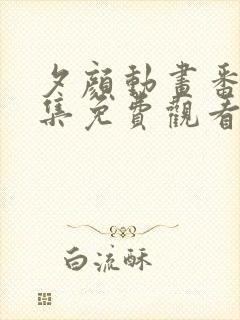 夕顏動畫番
集免費觀看
白流酥